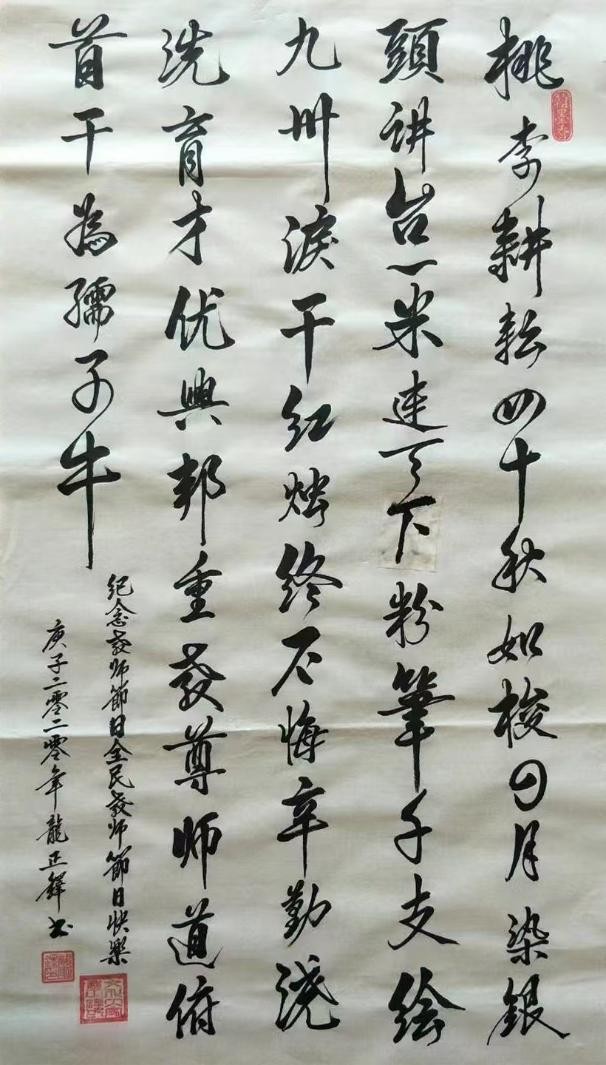 桃李耕耘四十秋如梭日月染銀
頭讲台一米连天下粉筆千支绘
九州淚干红烛终不悔辛勤浇
洗育才优興邦重教尊师道俯
首干為孺子牛
纪念教师節日全民教师節日快樂
庚子二零二零年龍正鐸书